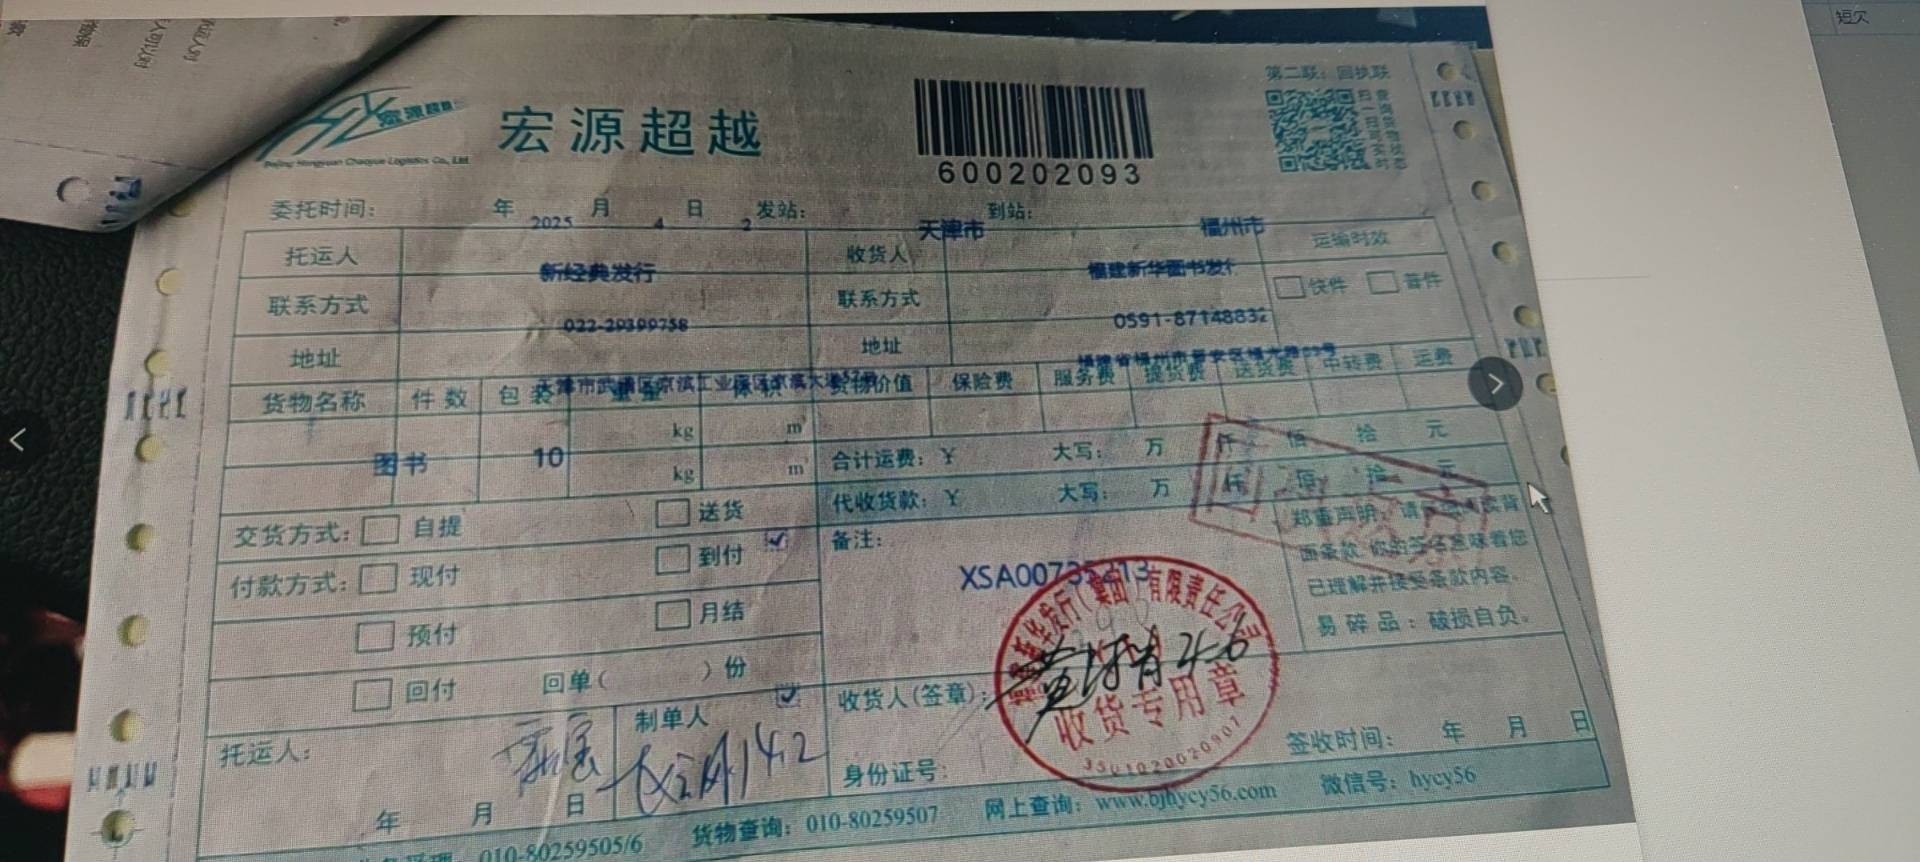 短欠
第二联：回执联
宏源超越
Beijing Hongyuan Chaoyue Logistics Co., Ltd.
600202093
委托时间： 年 2025 月 4 日 2 发站： 天津市 到站： 福州市
托运人 新经典发行 收货人 福建新华图书发行 运输时效
联系方式 022-29399758 联系方式 0591-87148832 快件 普件
地址 地址
货物名称 件数 包装 重量 体积 货物价值 保险费 服务费 提货费 送货费 中转费 运费
kg m³
图书 10
kg m³
合计运费：￥ 大写： 万 仟 佰 拾 元
代收货款：￥ 大写： 万 仟 佰 拾 元
交货方式： 自提 送货
付款方式： 现付 到付
预付 月结
回付 回单( )份
备注：
XSA00735213
郑重声明：请 读背
面条款 你的签名意味着您
已理解并接受条款内容。
易碎品：破损自负。
收货人(签章)：
4.6
福建新华发行（集团）有限责任公司
收货专用章
身份证号：
签收时间： 年 月 日
托运人： 制单人
4.2
年 月 日
010-80259505/6 货物查询：010-80259507 网上查询：www.bjhycy56.com 微信号：hycy56